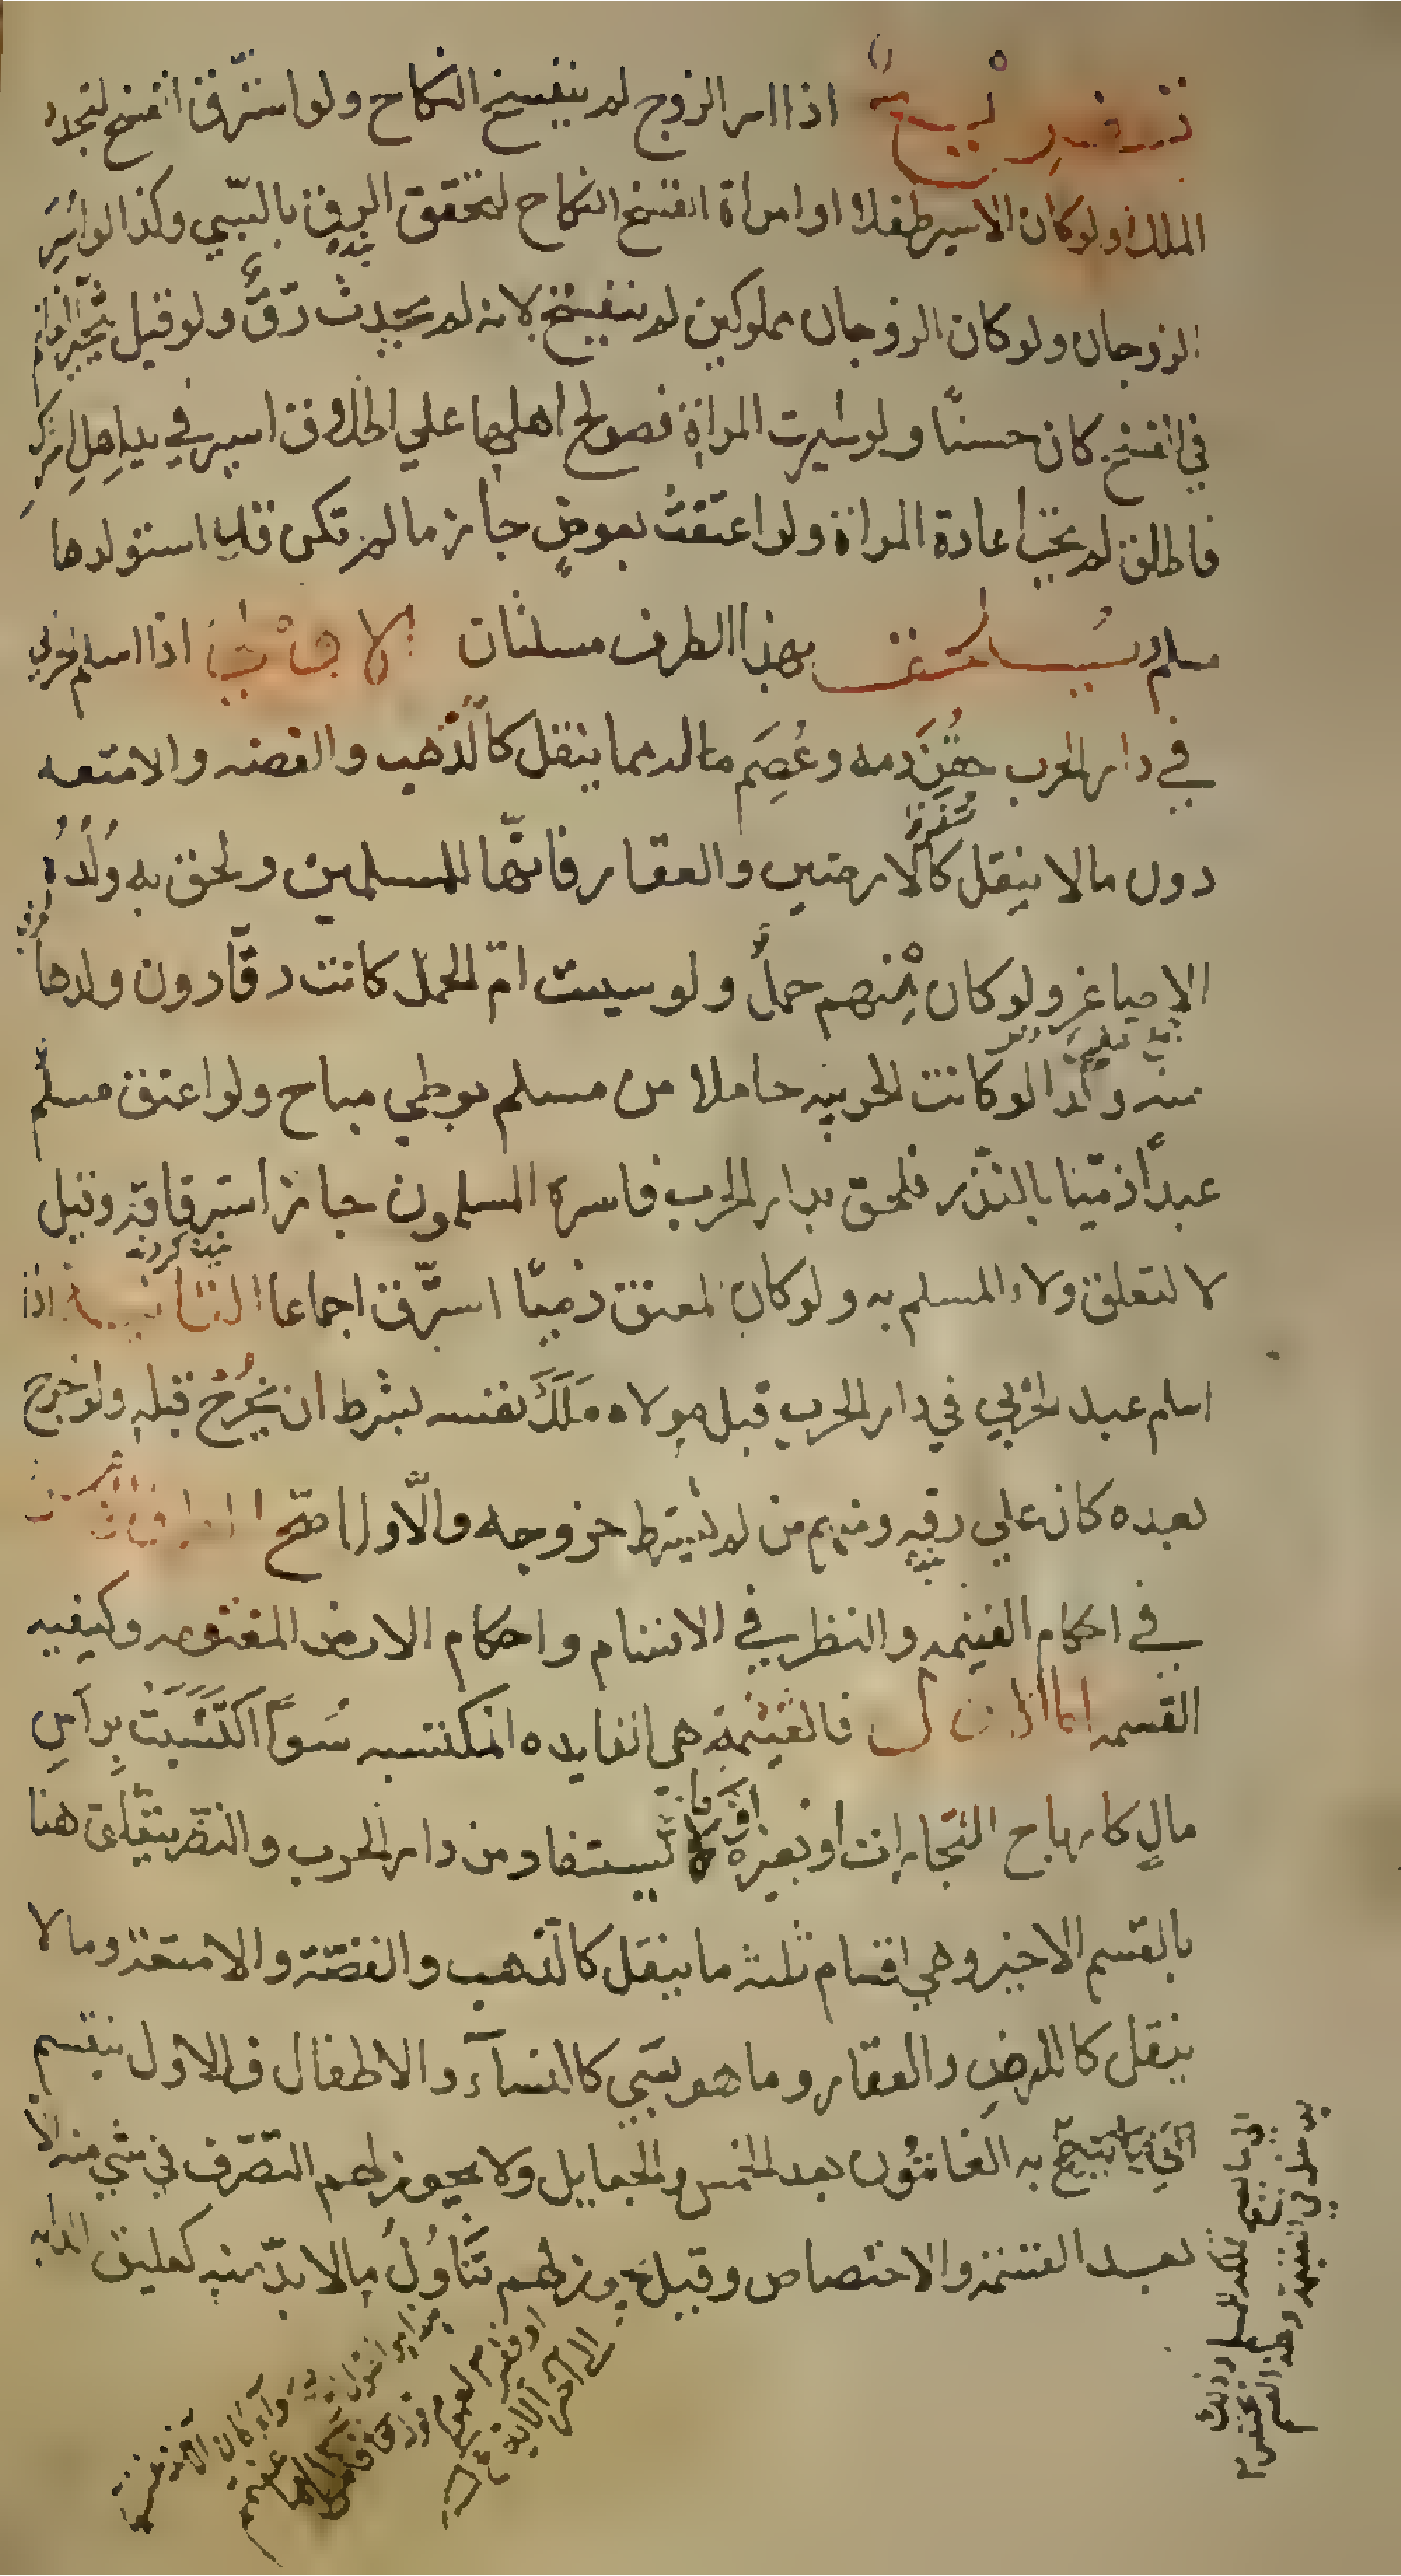 تفريع اذا اسر الزوج لم ينفسخ النكاح ولو استرق انفسخ لتجدد
الملك ولو كان الاسير طفلا او امراة انفسخ النكاح لتحقق الرق بالسبي وكذا لو اسر
الزوجان ولو كان الزوجان مملوكين لم ينفسخ لانه لم يحدث رق ولو قيل بتخير الغانم
في الفسخ كان حسنا ولو سبيت المراة فصولح اهلها علي اطلاق اسير في يد اهل الشرك
فاطلق لم يجب اعادة المراة ولو اعتقت بعوض جاز ما لم تكن قد استولدها
مسلم ويلحق بهذا الطرف مسئلتان الاولي اذا اسلم الحربي
في دار الحرب حقن دمه وعصم ماله مما ينقل كالذهب والفضه والامتعه
دون مالا ينقل كالارضين والعقار فانها للمسلمين ولحق به ولده
الاصاغر ولو كان منهم حمل ولو سبيت ام الحمل كانت رقا دون ولدها
منه وكذا لو كانت الحربيه حاملا من مسلم بوطي مباح ولو اعتق مسلم
عبدا ذميا بالنذر فلحق بدار الحرب فاسره المسلمون جاز استرقاقه وقيل
لا لتعلق ولاء المسلم به ولو كان المعتق ذميا استرق اجماعا الثانيه اذا
اسلم عبد الحربي في دار الحرب قبل مولاه ملك نفسه بشرط ان يخرج قبله ولو خرج
بعده كان علي رقه ومنهم من لم يشترط خروجه والاول اصح
في احكام الغنيمه والنظر في الاقسام واحكام الارض المفتوحه وكيفيه
القسمه اما الاول فالغنيمة هي الفايده المكتسبه سوا اكتسبت براس
مال كارباح التجارات او بغيره يستفاد من دار الحرب والنظر يتعلق هنا
بالقسم الاخير وهي اقسام ثلثه ما ينقل كالذهب والفضة والامتعة ومالا
ينقل كالارض والعقار وما هو سبي كالنساء والاطفال فالاول ينقسم
به الغانمون بعد الخمس والجعايل ولا يجوز لهم التصرف في شي منه الا
بعد القسمة والاختصاص وقيل يجوز لهم تناول مالا بد منه كعليق الدابه